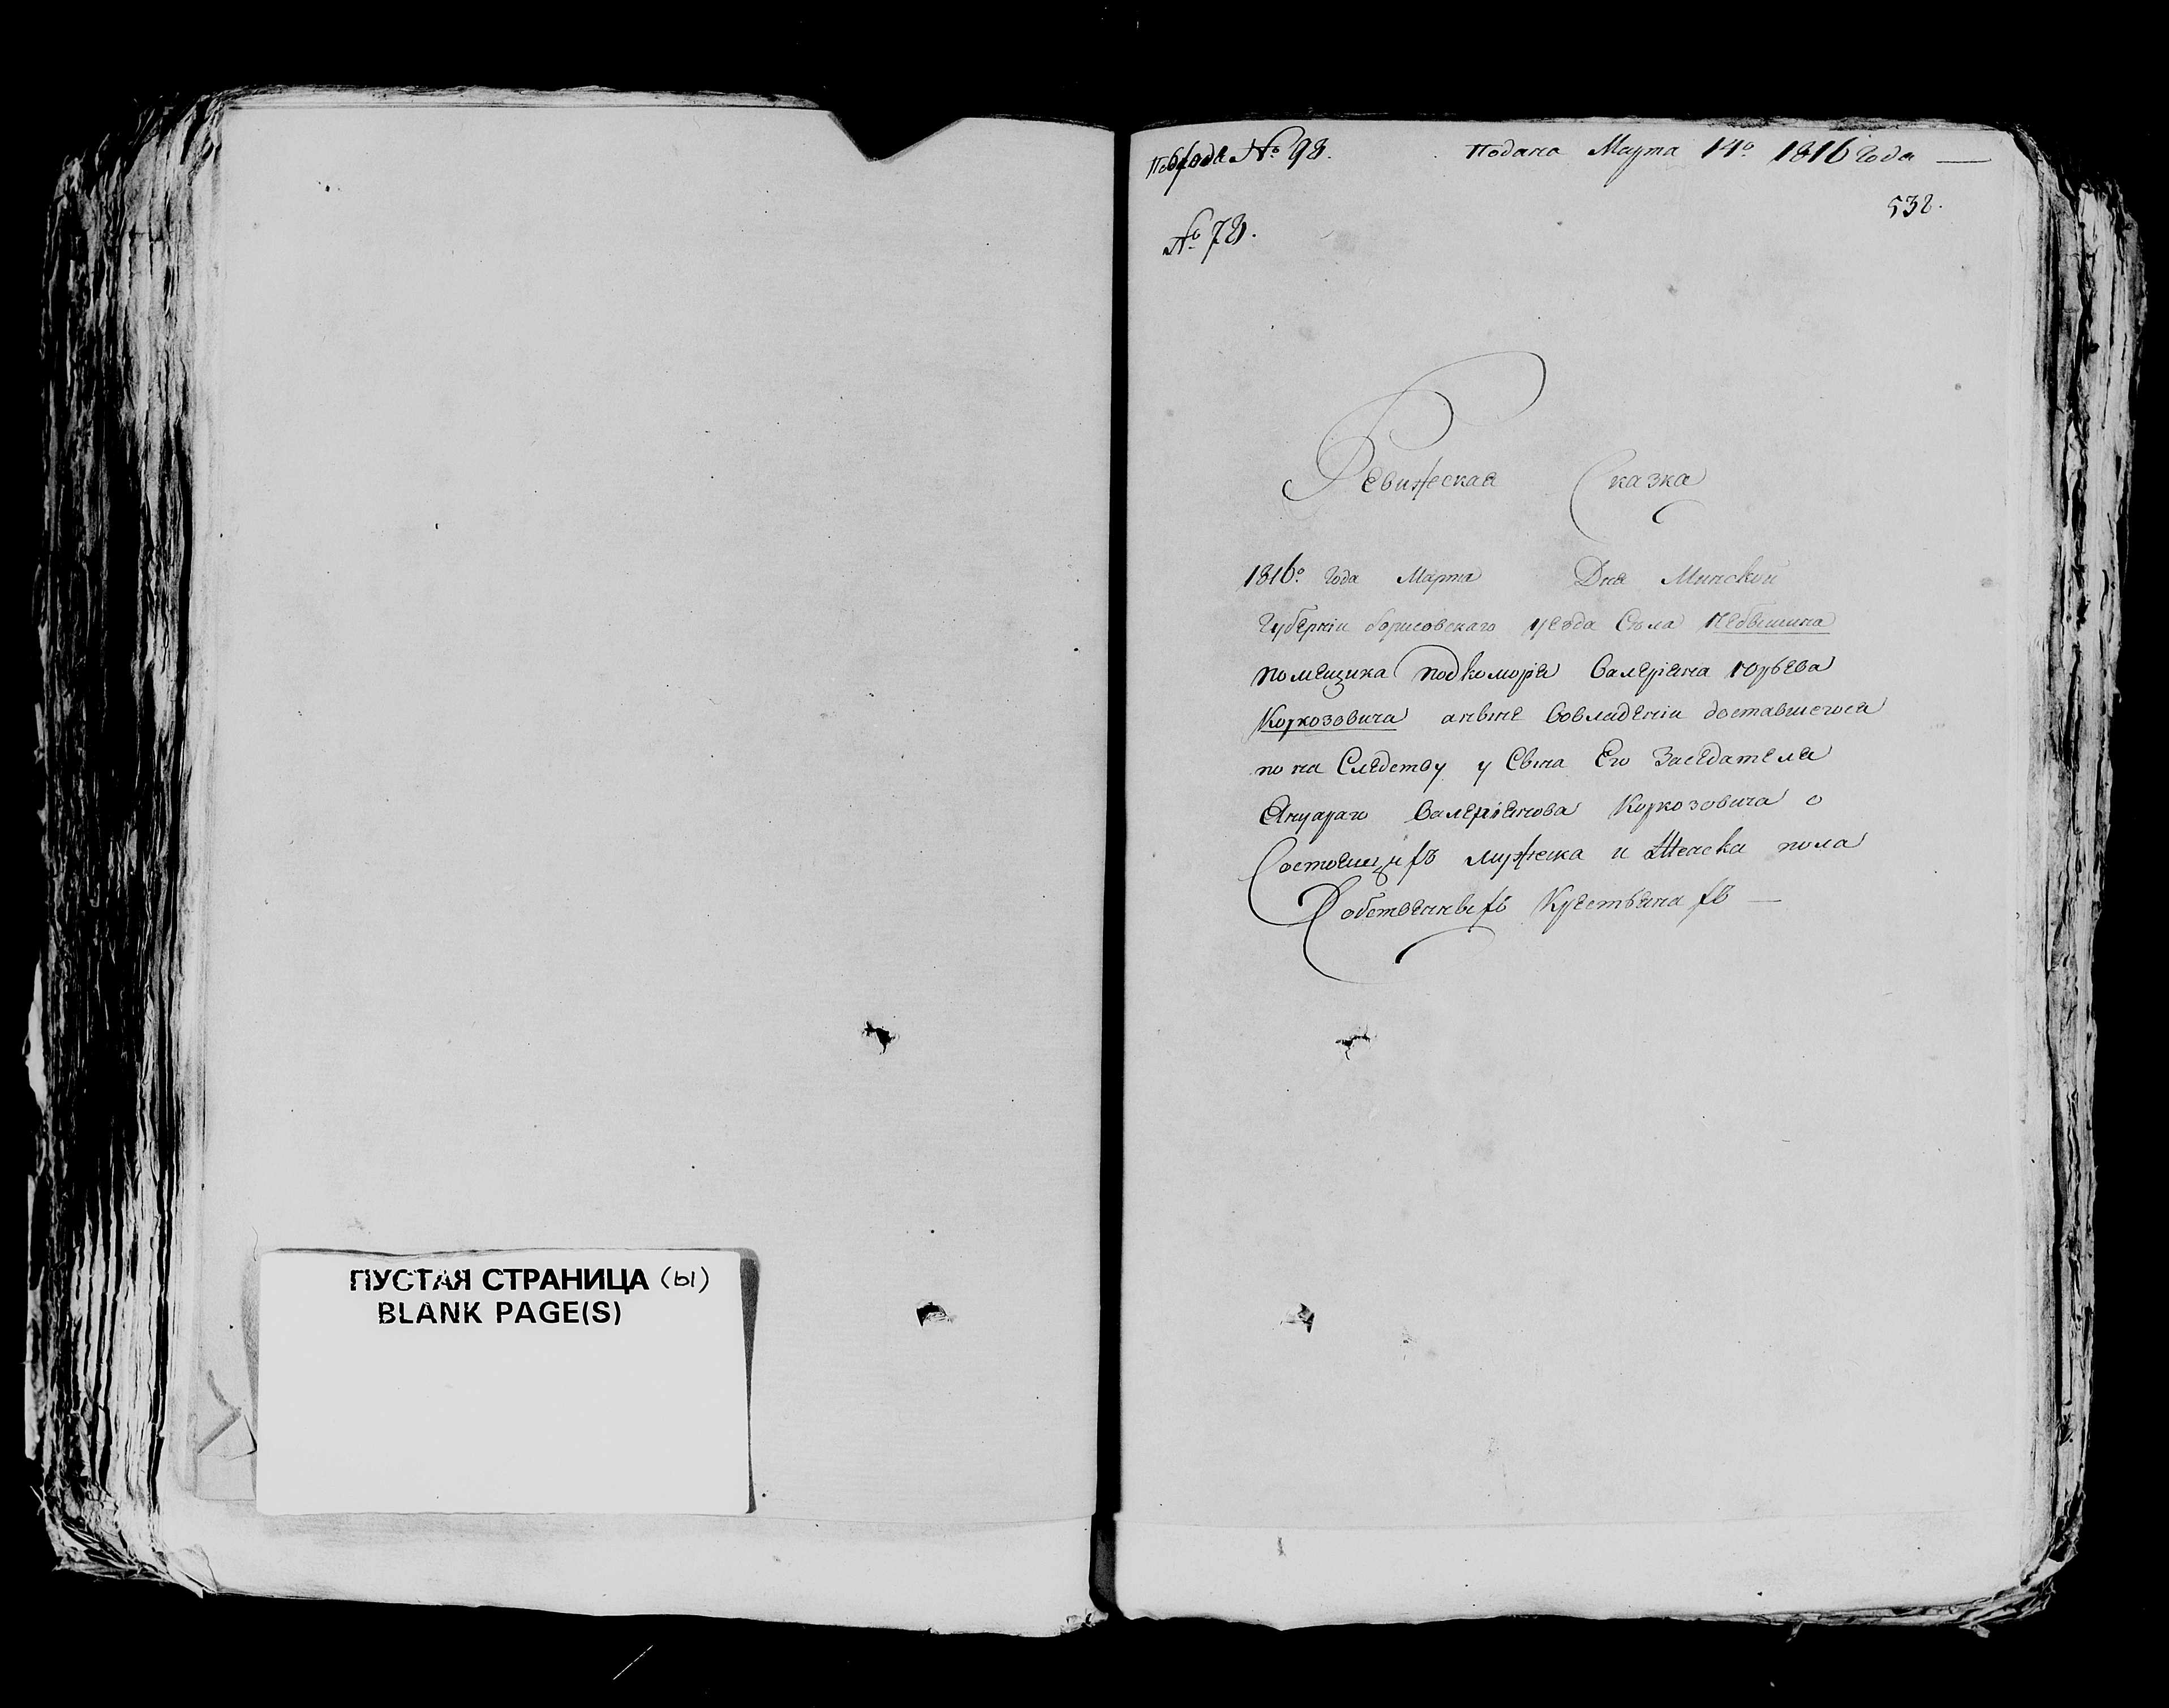 ПУСТАЯ СТРАНИЦА (ы)
BLANK PAGE(S)
№ 98. подана Марта 14º 1816 Года
538.
№ 78.
Ревижская Сказка
1816º Года Марта Дня Минской
Губерніи борисовскаго уезда Села
помещика подкоморя Валеріяна Юрьева
Коркозовича аныне Вовладеніи доставшегося
по на Следству у Сына Его Заседателя
Януараго Валеріянова Коркозовича о
Состоящихъ мужеска и Женска пола
Собственныхъ Крестьянахъ